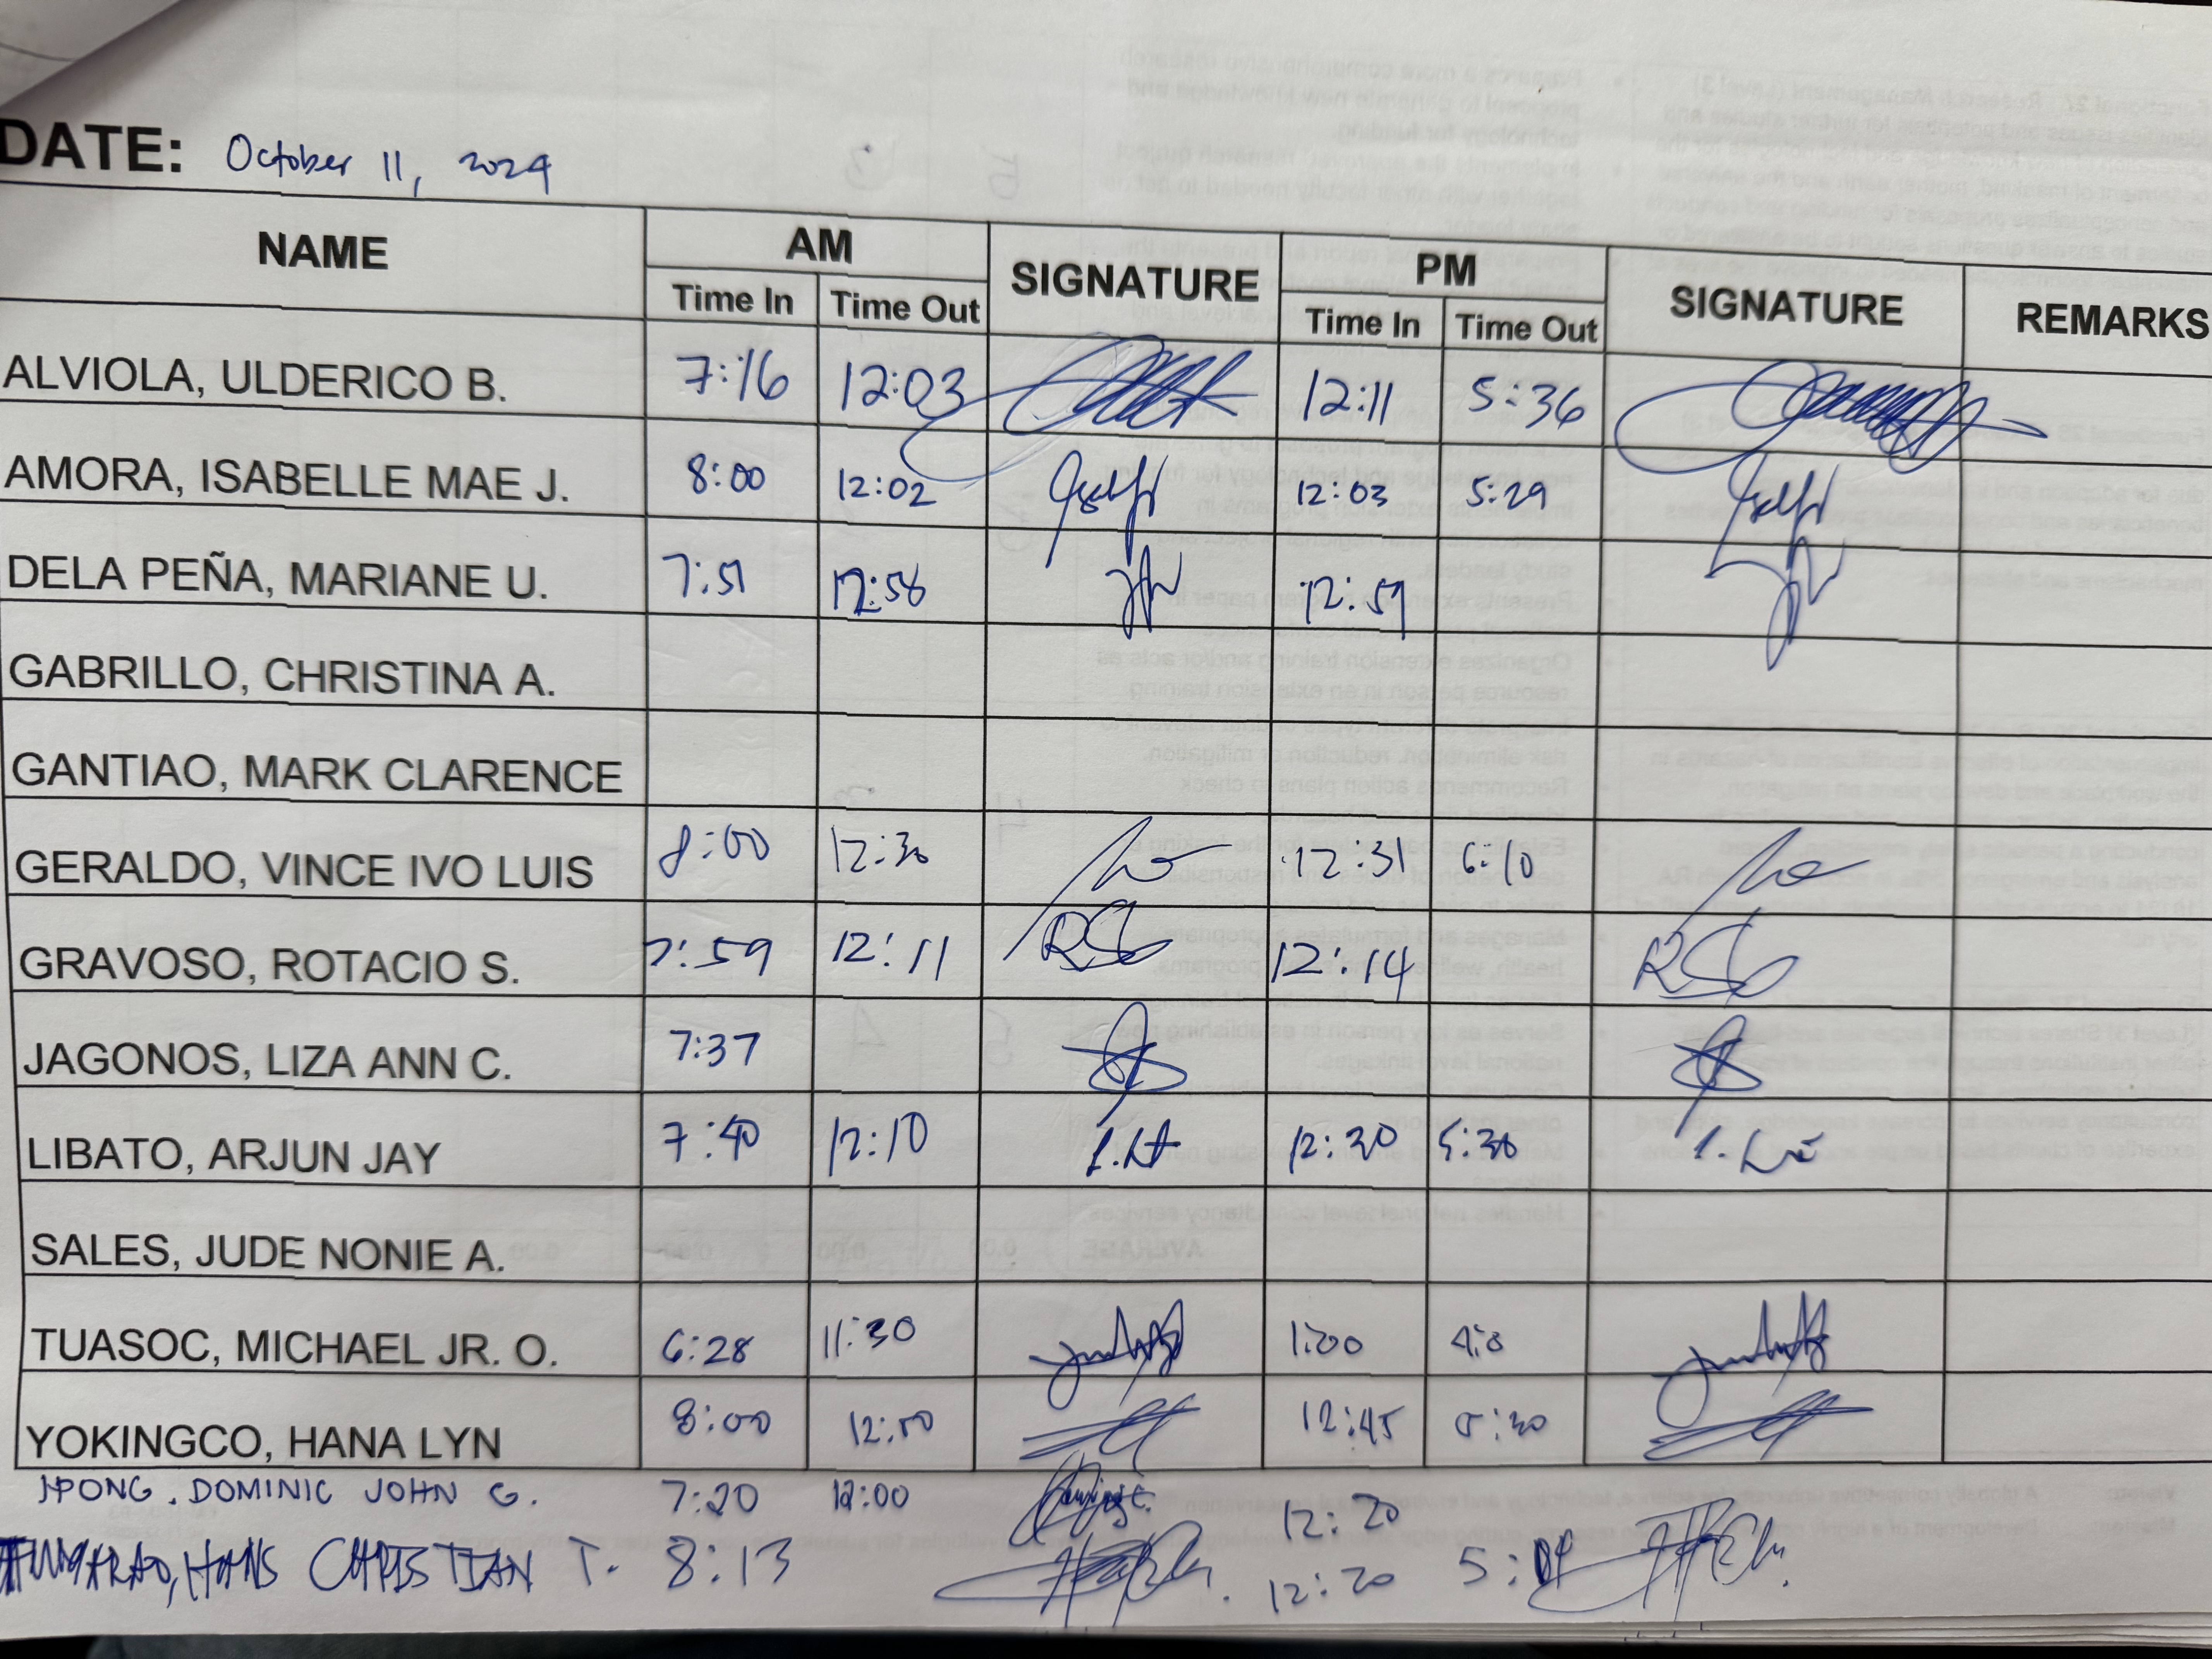 DATE: October 11, 2024
NAME AM SIGNATURE PM SIGNATURE REMARKS
Time In Time Out Time In Time Out
ALVIOLA, ULDERICO B. 7:16 12:03 12:11 5:36
AMORA, ISABELLE MAE J. 8:00 12:02 12:03 5:29
DELA PEÑA, MARIANE U. 7:51 12:58 12:59
GABRILLO, CHRISTINA A.
GANTIAO, MARK CLARENCE
GERALDO, VINCE IVO LUIS 8:00 12:30 12:31 6:10
GRAVOSO, ROTACIO S. 7:59 12:11 RSG 12:14 RSG
JAGONOS, LIZA ANN C. 7:37
LIBATO, ARJUN JAY 7:40 12:10 12:30 5:30
SALES, JUDE NONIE A.
TUASOC, MICHAEL JR. O. 6:28 11:30 1:00
YOKINGCO, HANA LYN 8:00 12:45 5:30
DOMINIC JOHN G. 7:20 12:00 12:20
HANS CHRISTIAN T. 8:13 12:20